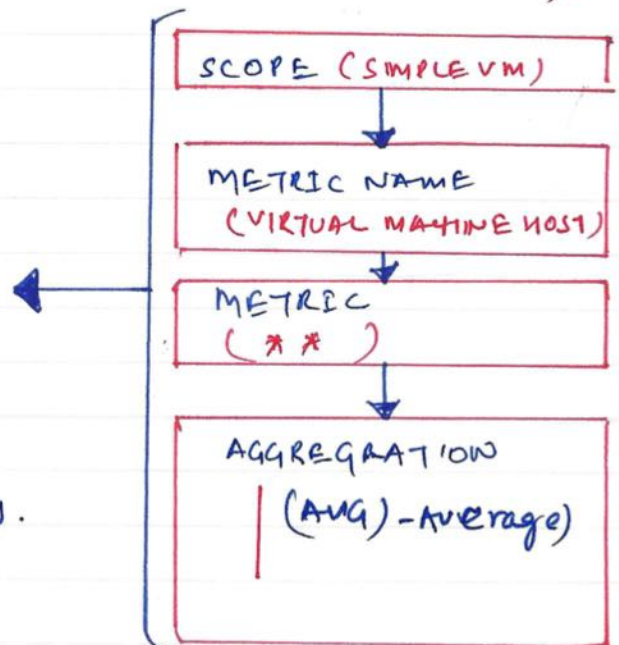 SCOPE (SIMPLE VM)
METRIC NAME
(VIRTUAL MACHINE HOST)
METRIC
( * * )
AGGREGRATION
(AVG) - Average)